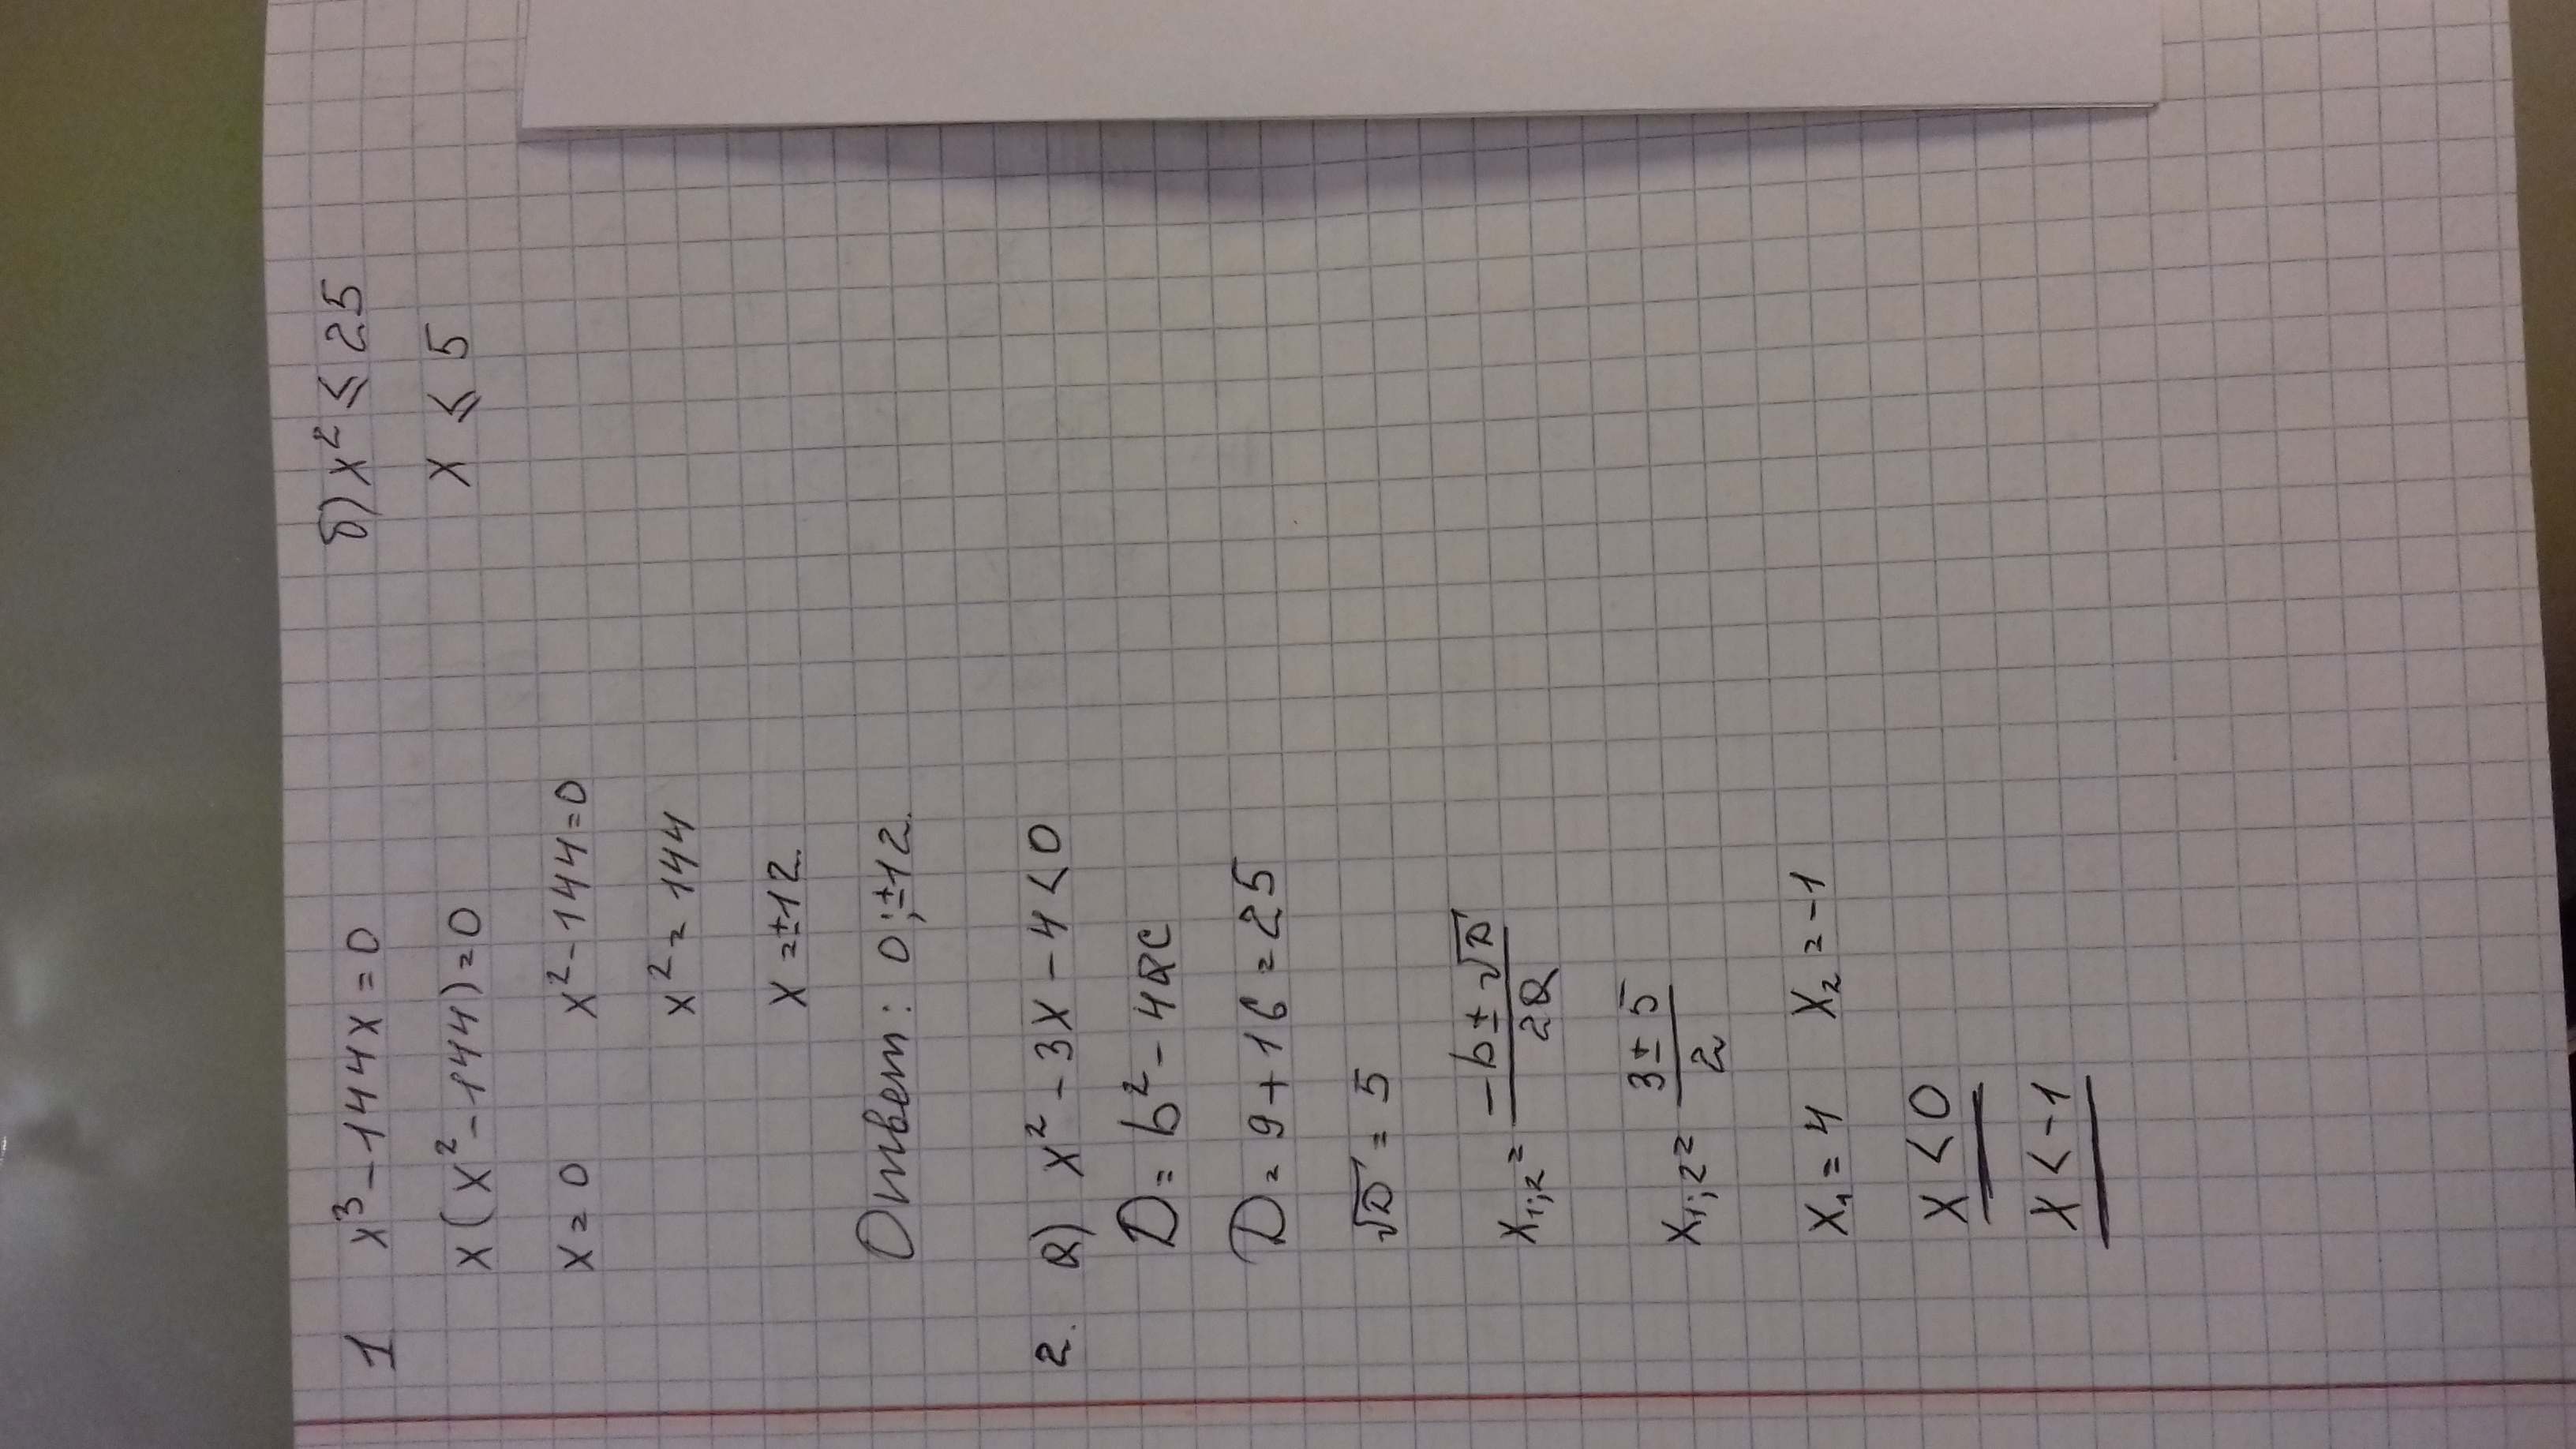 1 x³ - 144x = 0
x(x² - 144) = 0
x = 0 x² - 144 = 0
x² = 144
x = ±12.
Ответ: 0; ±12.
2. а) x² - 3x - 4 < 0
D = b² - 4ac
D = 9 + 16 = 25
√D = 5
x₁;₂ = (-b ± √D)/2a
x₁;₂ = (3 ± 5)/2
x₁ = 4 x₂ = -1
x < 0
x < -1
б) x² ⩽ 25
x ⩽ 5